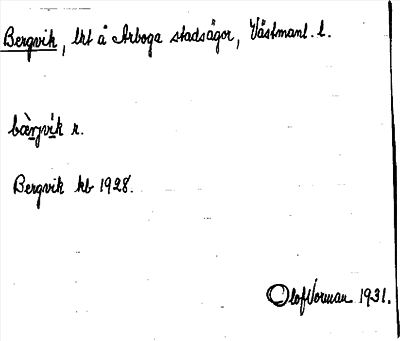 Bergvik, lht å Arboga stadsägor, Västmanl. l.
bæ̀rjvik r.
Bergvik kb 1928.
Olof Vorman 1931.